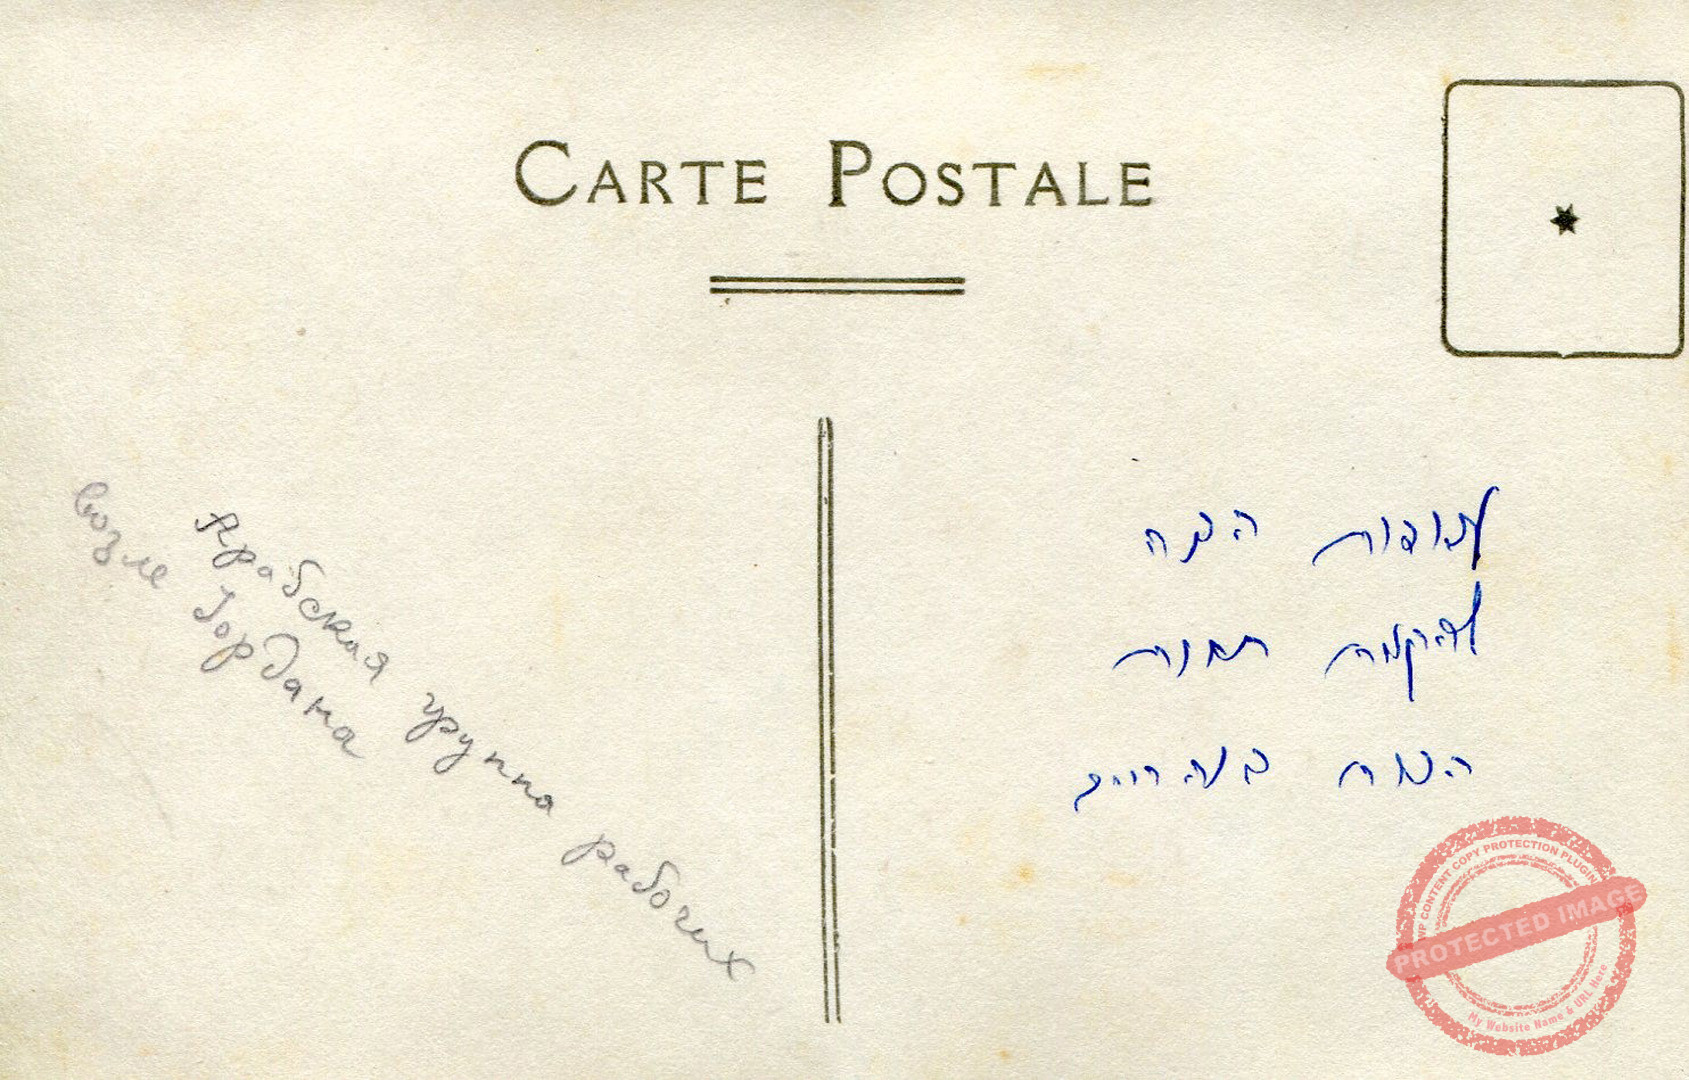 CARTE POSTALE
Арабская группа рабочих
возле Іордана
עבודות הכנה
להקמת תחנת
הכוח בנהריים
WP CONTENT COPY PROTECTION PLUGIN
PROTECTED IMAGE
My Website Name & URL Here